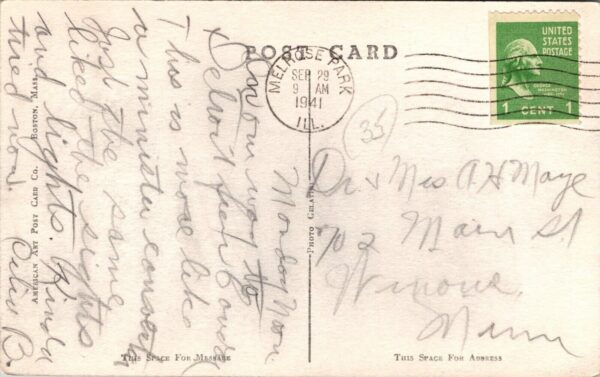 POST CARD
MELROSE PARK
SEP 29
9 AM
1941
ILL.
UNITED
STATES
POSTAGE
GEORGE
WASHINGTON
1 CENT 1
35
Monday Noon
On our way to
Detroit
This is more like
a minister
Just the same
liked the sights
and lights. Kinda
tired now.
B.
Dr. & Mrs A H Maze
702 Main St
Winona
Minn
AMERICAN ART POST CARD CO. BOSTON, MASS.
PHOTO GELATINE
THIS SPACE FOR MESSAGE
THIS SPACE FOR ADDRESS